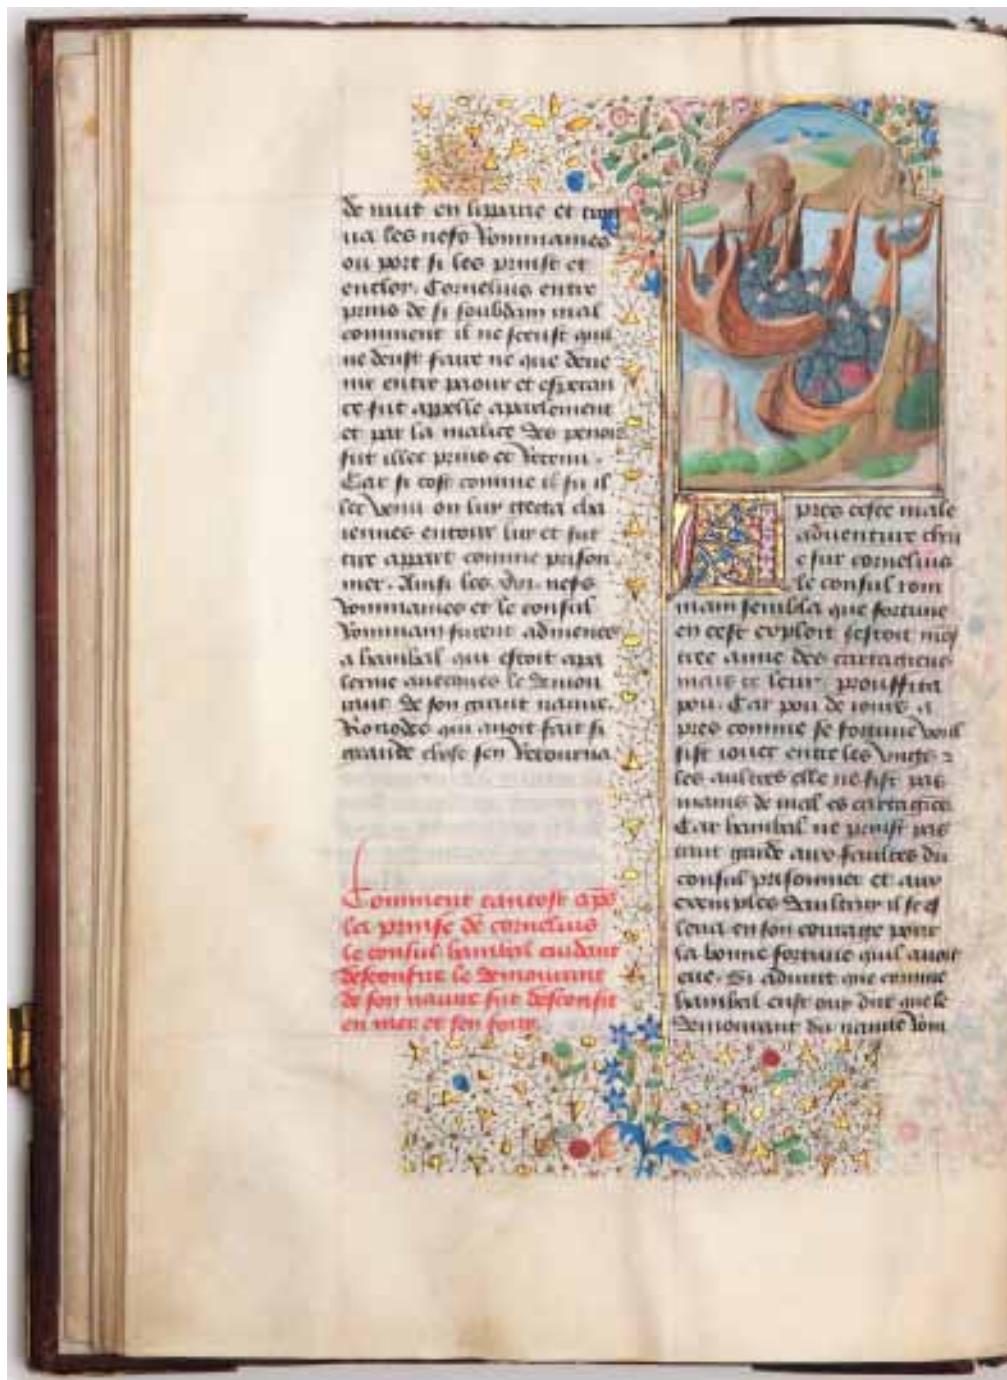 de nuit en lippaire et trou
ua les nefs Rommaines
ou port si les prinst et
enclor. Cornelius entre
prins de si soubdain mal
comment il ne sceust quil
ne deust faire ne que deue
nir entre paour et esperan
ce fut appelle a parlement
et par la malice des penois
fut illec prins et Retenu.
Car si tost comme il fu il
lec venu on luy gecta cha
iennes entour luy et fut
tire appart comme prison
nier. Ainsi les nefs
Rommaines et le consul
Rommain furent admenes
a hanibal qui estoit a pa
lerme auecques le demou
rant de son grant nauire.
qui auoit fait si
grande chose sen Retourna
Comment tantost aps
la prinse de cornelius
le consul hanibal cuidant
desconfire le demourant
de son nauire fut desconfit
en mer et sen fouy.
Apres ceste male
aduenture
cornelius
le consul rom
main sembla que fortune
en cest exploit sestoit mos
tree amie des cartagiens
mais ce leur prouffita
pou. Car pou de iours a
pres comme se fortune voul
sist iouer entre les vngs 
les aultres elle ne fist pas
mains de mal es cartagies
Car hanibal ne prinst pas
tant garde aux faultes du
consul prisonnier et aux
exemples daultruy il se es
leua en son courage pour
la bonne fortune quil auoit
eue. Si aduint que comme
hanibal eust ouy dire que le
demourant du nauire Rom